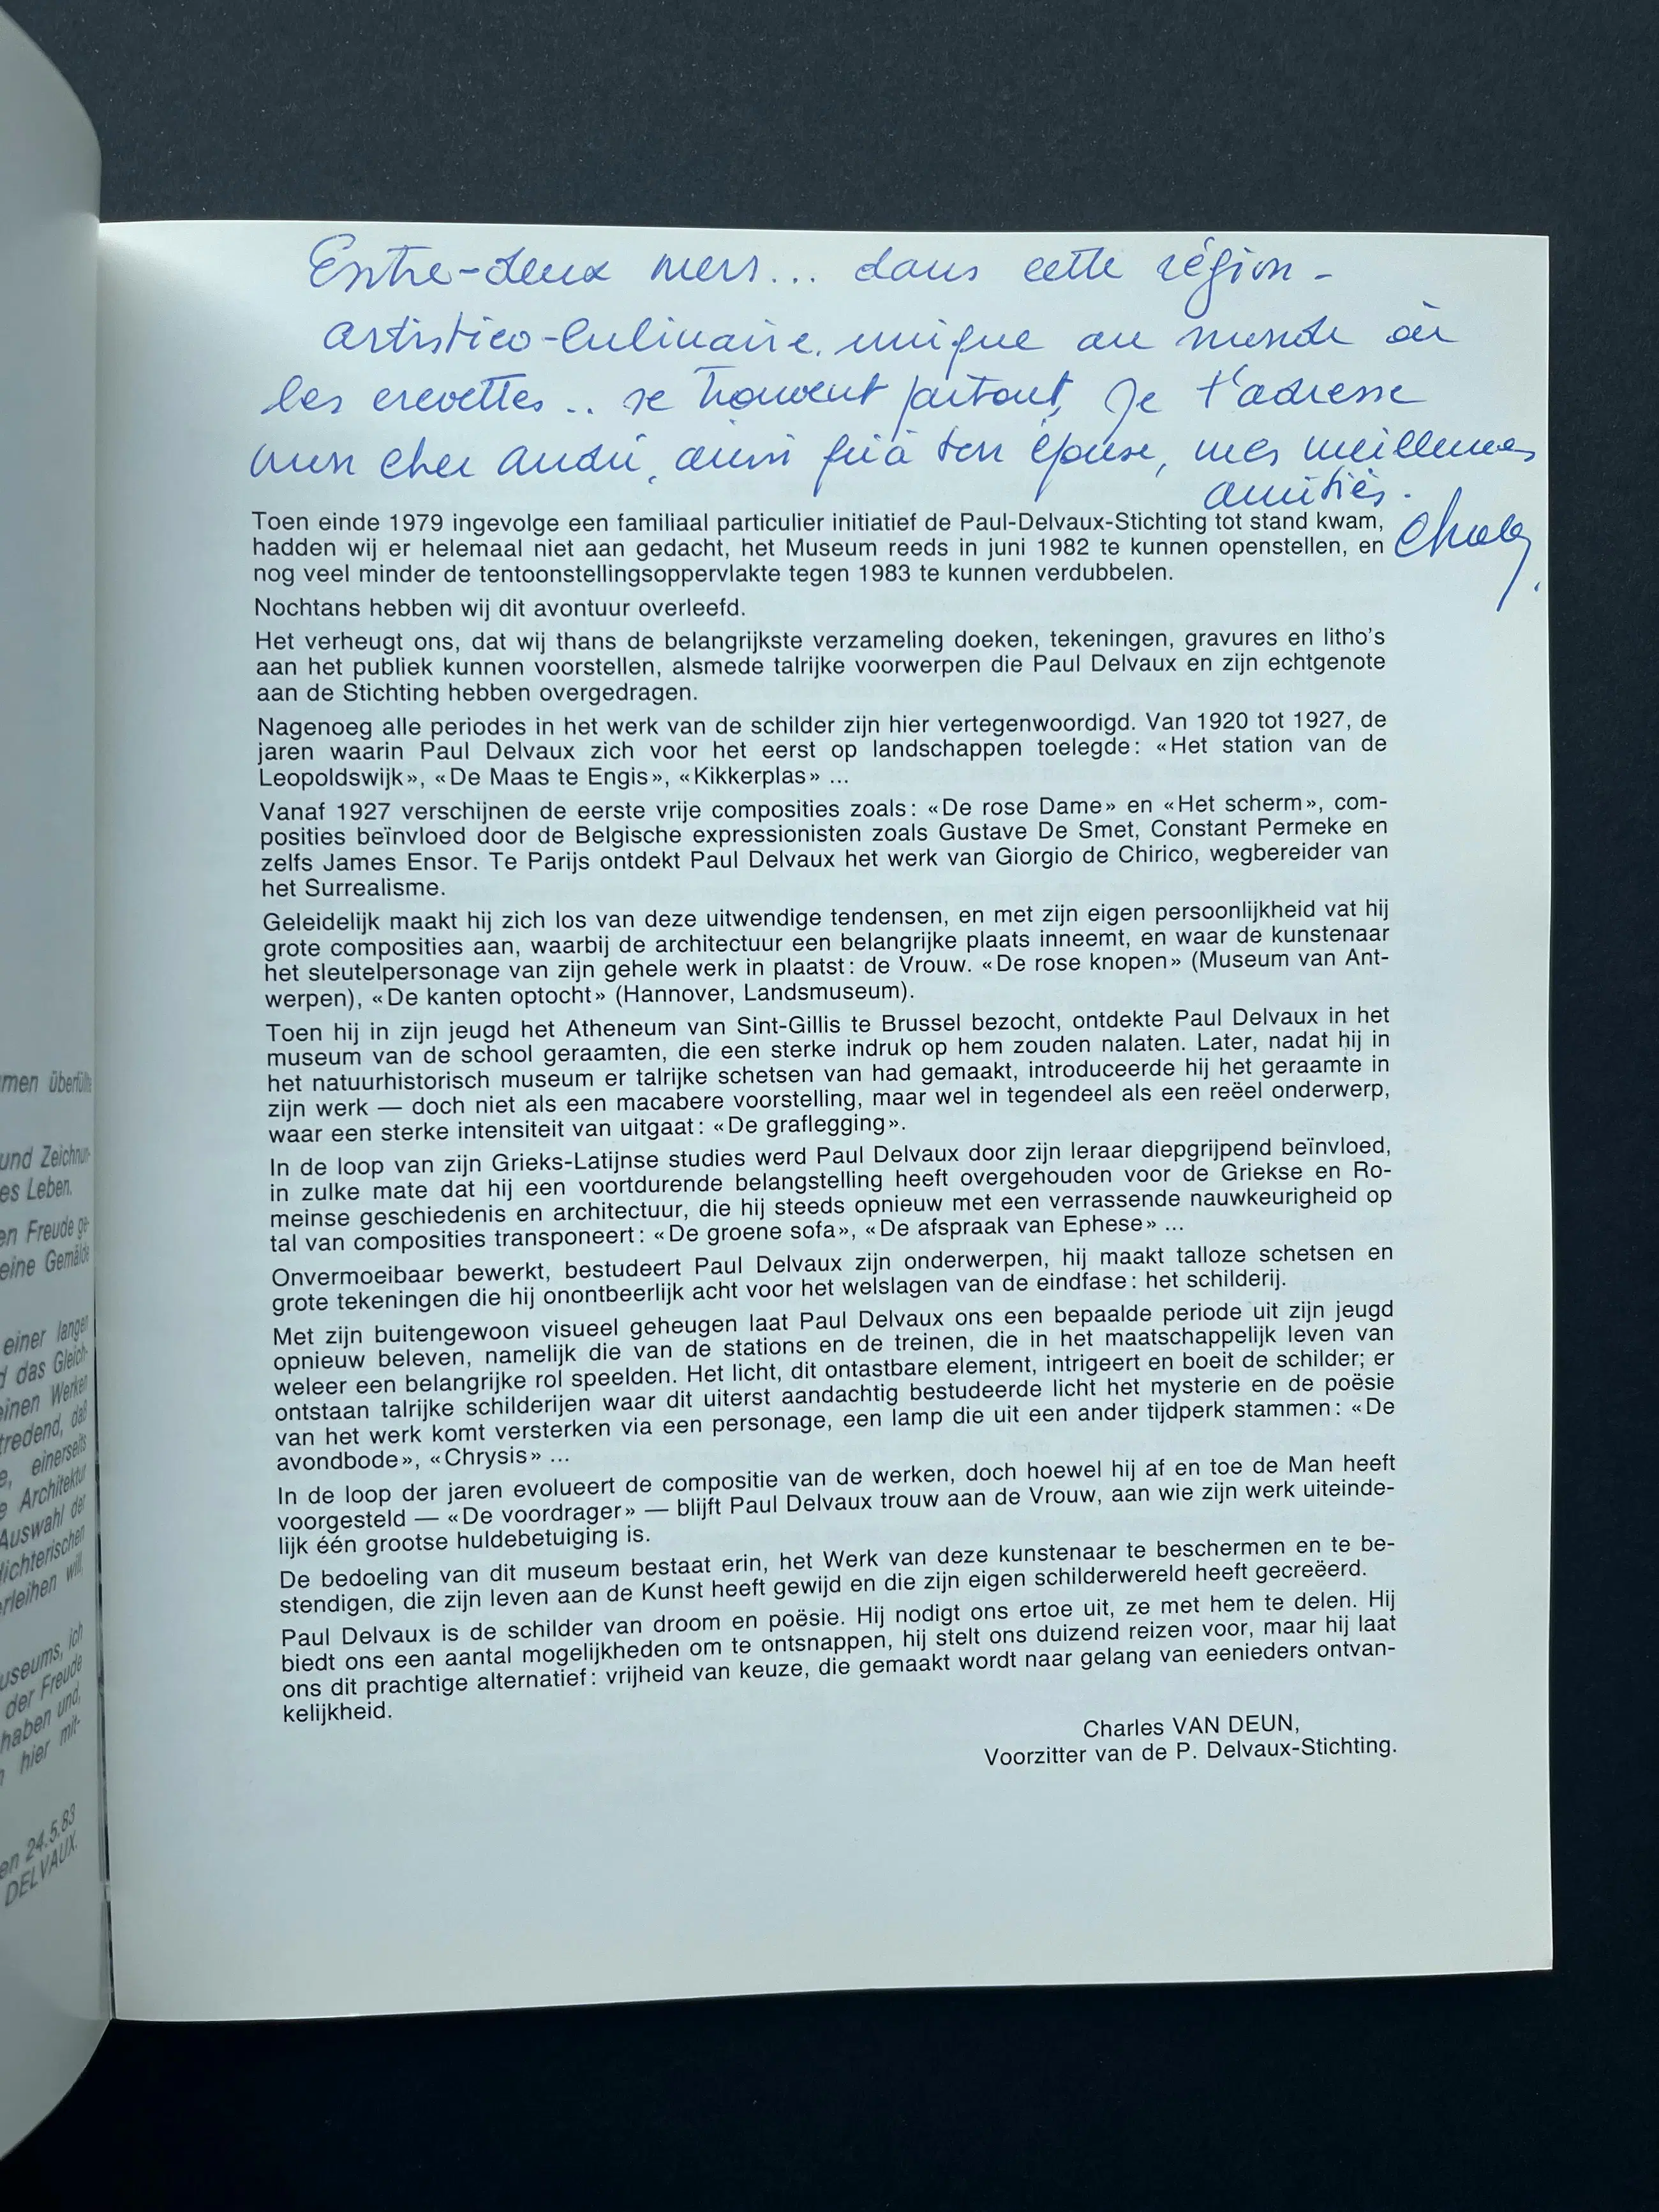 Entre-deux mers... dans cette région -
artistico-culinaire, unique au monde où
les crevettes .. se trouvent partout, je t'adresse
mon cher André, ainsi qu'à ton épouse, mes meilleures
amitiés.
Toen einde 1979 ingevolge een familiaal particulier initiatief de Paul-Delvaux-Stichting tot stand kwam,
hadden wij er helemaal niet aan gedacht, het Museum reeds in juni 1982 te kunnen openstellen, en
nog veel minder de tentoonstellingsoppervlakte tegen 1983 te kunnen verdubbelen.
Nochtans hebben wij dit avontuur overleefd.
Het verheugt ons, dat wij thans de belangrijkste verzameling doeken, tekeningen, gravures en litho's
aan het publiek kunnen voorstellen, alsmede talrijke voorwerpen die Paul Delvaux en zijn echtgenote
aan de Stichting hebben overgedragen.
Nagenoeg alle periodes in het werk van de schilder zijn hier vertegenwoordigd. Van 1920 tot 1927, de
jaren waarin Paul Delvaux zich voor het eerst op landschappen toelegde: «Het station van de
Leopoldswijk», «De Maas te Engis», «Kikkerplas» ...
Vanaf 1927 verschijnen de eerste vrije composities zoals: «De rose Dame» en «Het scherm», com-
posities beïnvloed door de Belgische expressionisten zoals Gustave De Smet, Constant Permeke en
zelfs James Ensor. Te Parijs ontdekt Paul Delvaux het werk van Giorgio de Chirico, wegbereider van
het Surrealisme.
Geleidelijk maakt hij zich los van deze uitwendige tendensen, en met zijn eigen persoonlijkheid vat hij
grote composities aan, waarbij de architectuur een belangrijke plaats inneemt, en waar de kunstenaar
het sleutelpersonage van zijn gehele werk in plaatst: de Vrouw. «De rose knopen» (Museum van Ant-
werpen), «De kanten optocht» (Hannover, Landsmuseum).
Toen hij in zijn jeugd het Atheneum van Sint-Gillis te Brussel bezocht, ontdekte Paul Delvaux in het
museum van de school geraamten, die een sterke indruk op hem zouden nalaten. Later, nadat hij in
het natuurhistorisch museum er talrijke schetsen van had gemaakt, introduceerde hij het geraamte in
zijn werk — doch niet als een macabere voorstelling, maar wel in tegendeel als een reëel onderwerp,
waar een sterke intensiteit van uitgaat: «De graflegging».
In de loop van zijn Grieks-Latijnse studies werd Paul Delvaux door zijn leraar diepgrijpend beïnvloed,
in zulke mate dat hij een voortdurende belangstelling heeft overgehouden voor de Griekse en Ro-
meinse geschiedenis en architectuur, die hij steeds opnieuw met een verrassende nauwkeurigheid op
tal van composities transponeert: «De groene sofa», «De afspraak van Ephese» ...
Onvermoeibaar bewerkt, bestudeert Paul Delvaux zijn onderwerpen, hij maakt talloze schetsen en
grote tekeningen die hij onontbeerlijk acht voor het welslagen van de eindfase: het schilderij.
Met zijn buitengewoon visueel geheugen laat Paul Delvaux ons een bepaalde periode uit zijn jeugd
opnieuw beleven, namelijk die van de stations en de treinen, die in het maatschappelijk leven van
weleer een belangrijke rol speelden. Het licht, dit ontastbare element, intrigeert en boeit de schilder; er
ontstaan talrijke schilderijen waar dit uiterst aandachtig bestudeerde licht het mysterie en de poësie
van het werk komt versterken via een personage, een lamp die uit een ander tijdperk stammen: «De
avondbode», «Chrysis» ...
In de loop der jaren evolueert de compositie van de werken, doch hoewel hij af en toe de Man heeft
voorgesteld — «De voordrager» — blijft Paul Delvaux trouw aan de Vrouw, aan wie zijn werk uiteinde-
lijk één grootse huldebetuiging is.
De bedoeling van dit museum bestaat erin, het Werk van deze kunstenaar te beschermen en te be-
stendigen, die zijn leven aan de Kunst heeft gewijd en die zijn eigen schilderwereld heeft gecreëerd.
Paul Delvaux is de schilder van droom en poësie. Hij nodigt ons ertoe uit, ze met hem te delen. Hij
biedt ons een aantal mogelijkheden om te ontsnappen, hij stelt ons duizend reizen voor, maar hij laat
ons dit prachtige alternatief: vrijheid van keuze, die gemaakt wordt naar gelang van eenieders ontvan-
kelijkheid.
Charles VAN DEUN,
Voorzitter van de P. Delvaux-Stichting.
men überfüllte
und Zeichnun-
es Leben.
en Freude ge-
eine Gemälde
einer langen
d das Gleich-
einen Werken
tredend, daß
e, einerseits
e Architektur
Auswahl der
lichterischen
erleihen will,
useums, ich
der Freude
haben und,
hier mit-
en 24.5.83
DELVAUX.